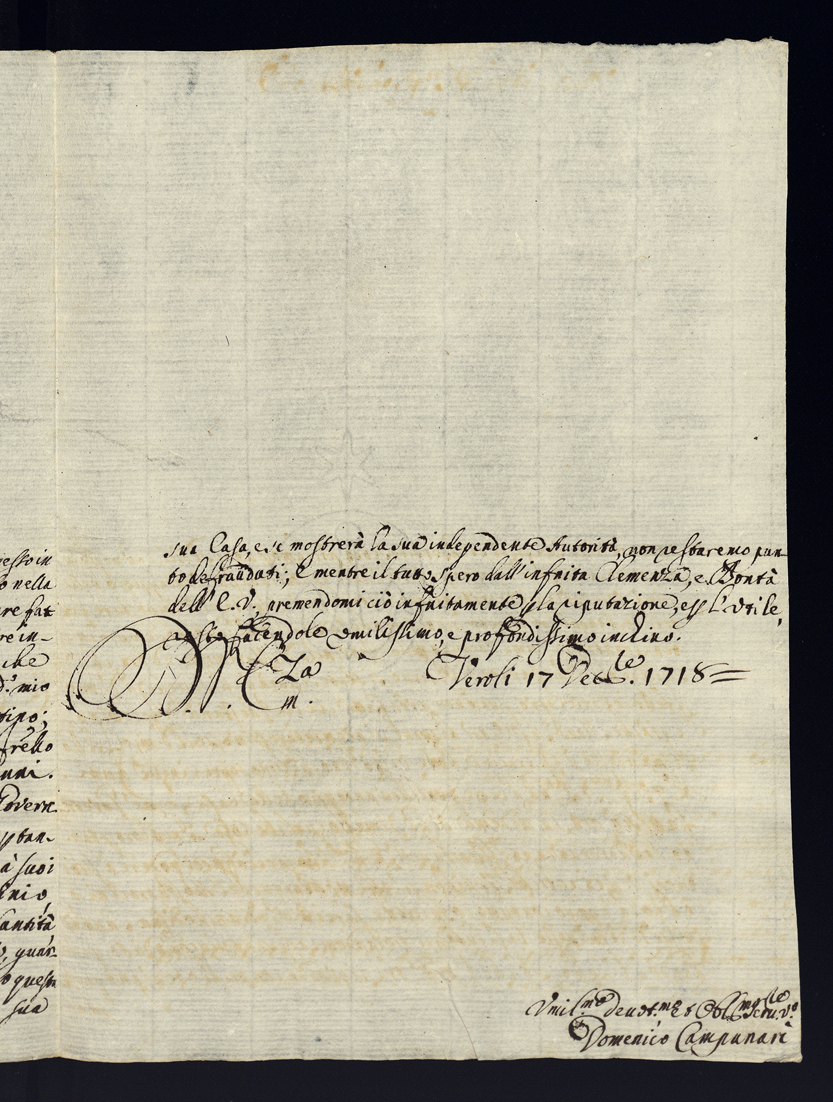 esto in
o nella
are fat
re in-
che
d.º mio
tipo;
frello
nni.
Govern.
stan-
à suoi
inio,
santità
quar-
o questa
sua
sua Casa, e se mostrerà la sua independente Autorità, non restaremo pun
to defraudati; E mentre il tutto spero dall'infinita Clemenza, e Bontà
dell'E.V., premendomi ciò infinitamente la riputazione, L'Utile,
resto facendole umilissimo, e profondissimo inchino.
Veroli 17 Dec.le 1718=
Vmil.mo deuot.mo et Obl.mo Seru.re V.º
Domenico Campanari